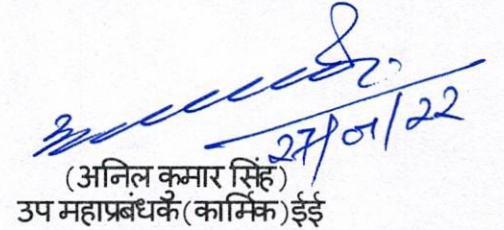 27/01/22
(अनिल कुमार सिंह)
उप महाप्रबंधक(कार्मिक)ईई